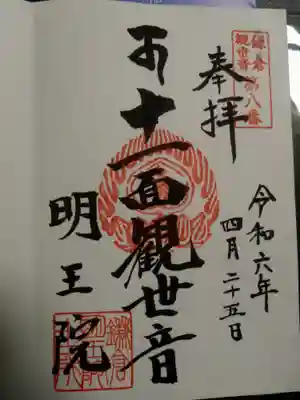 鎌倉
観世音
第八番
奉拝
令和六年
四月二十五日
十一面観世音
明王院